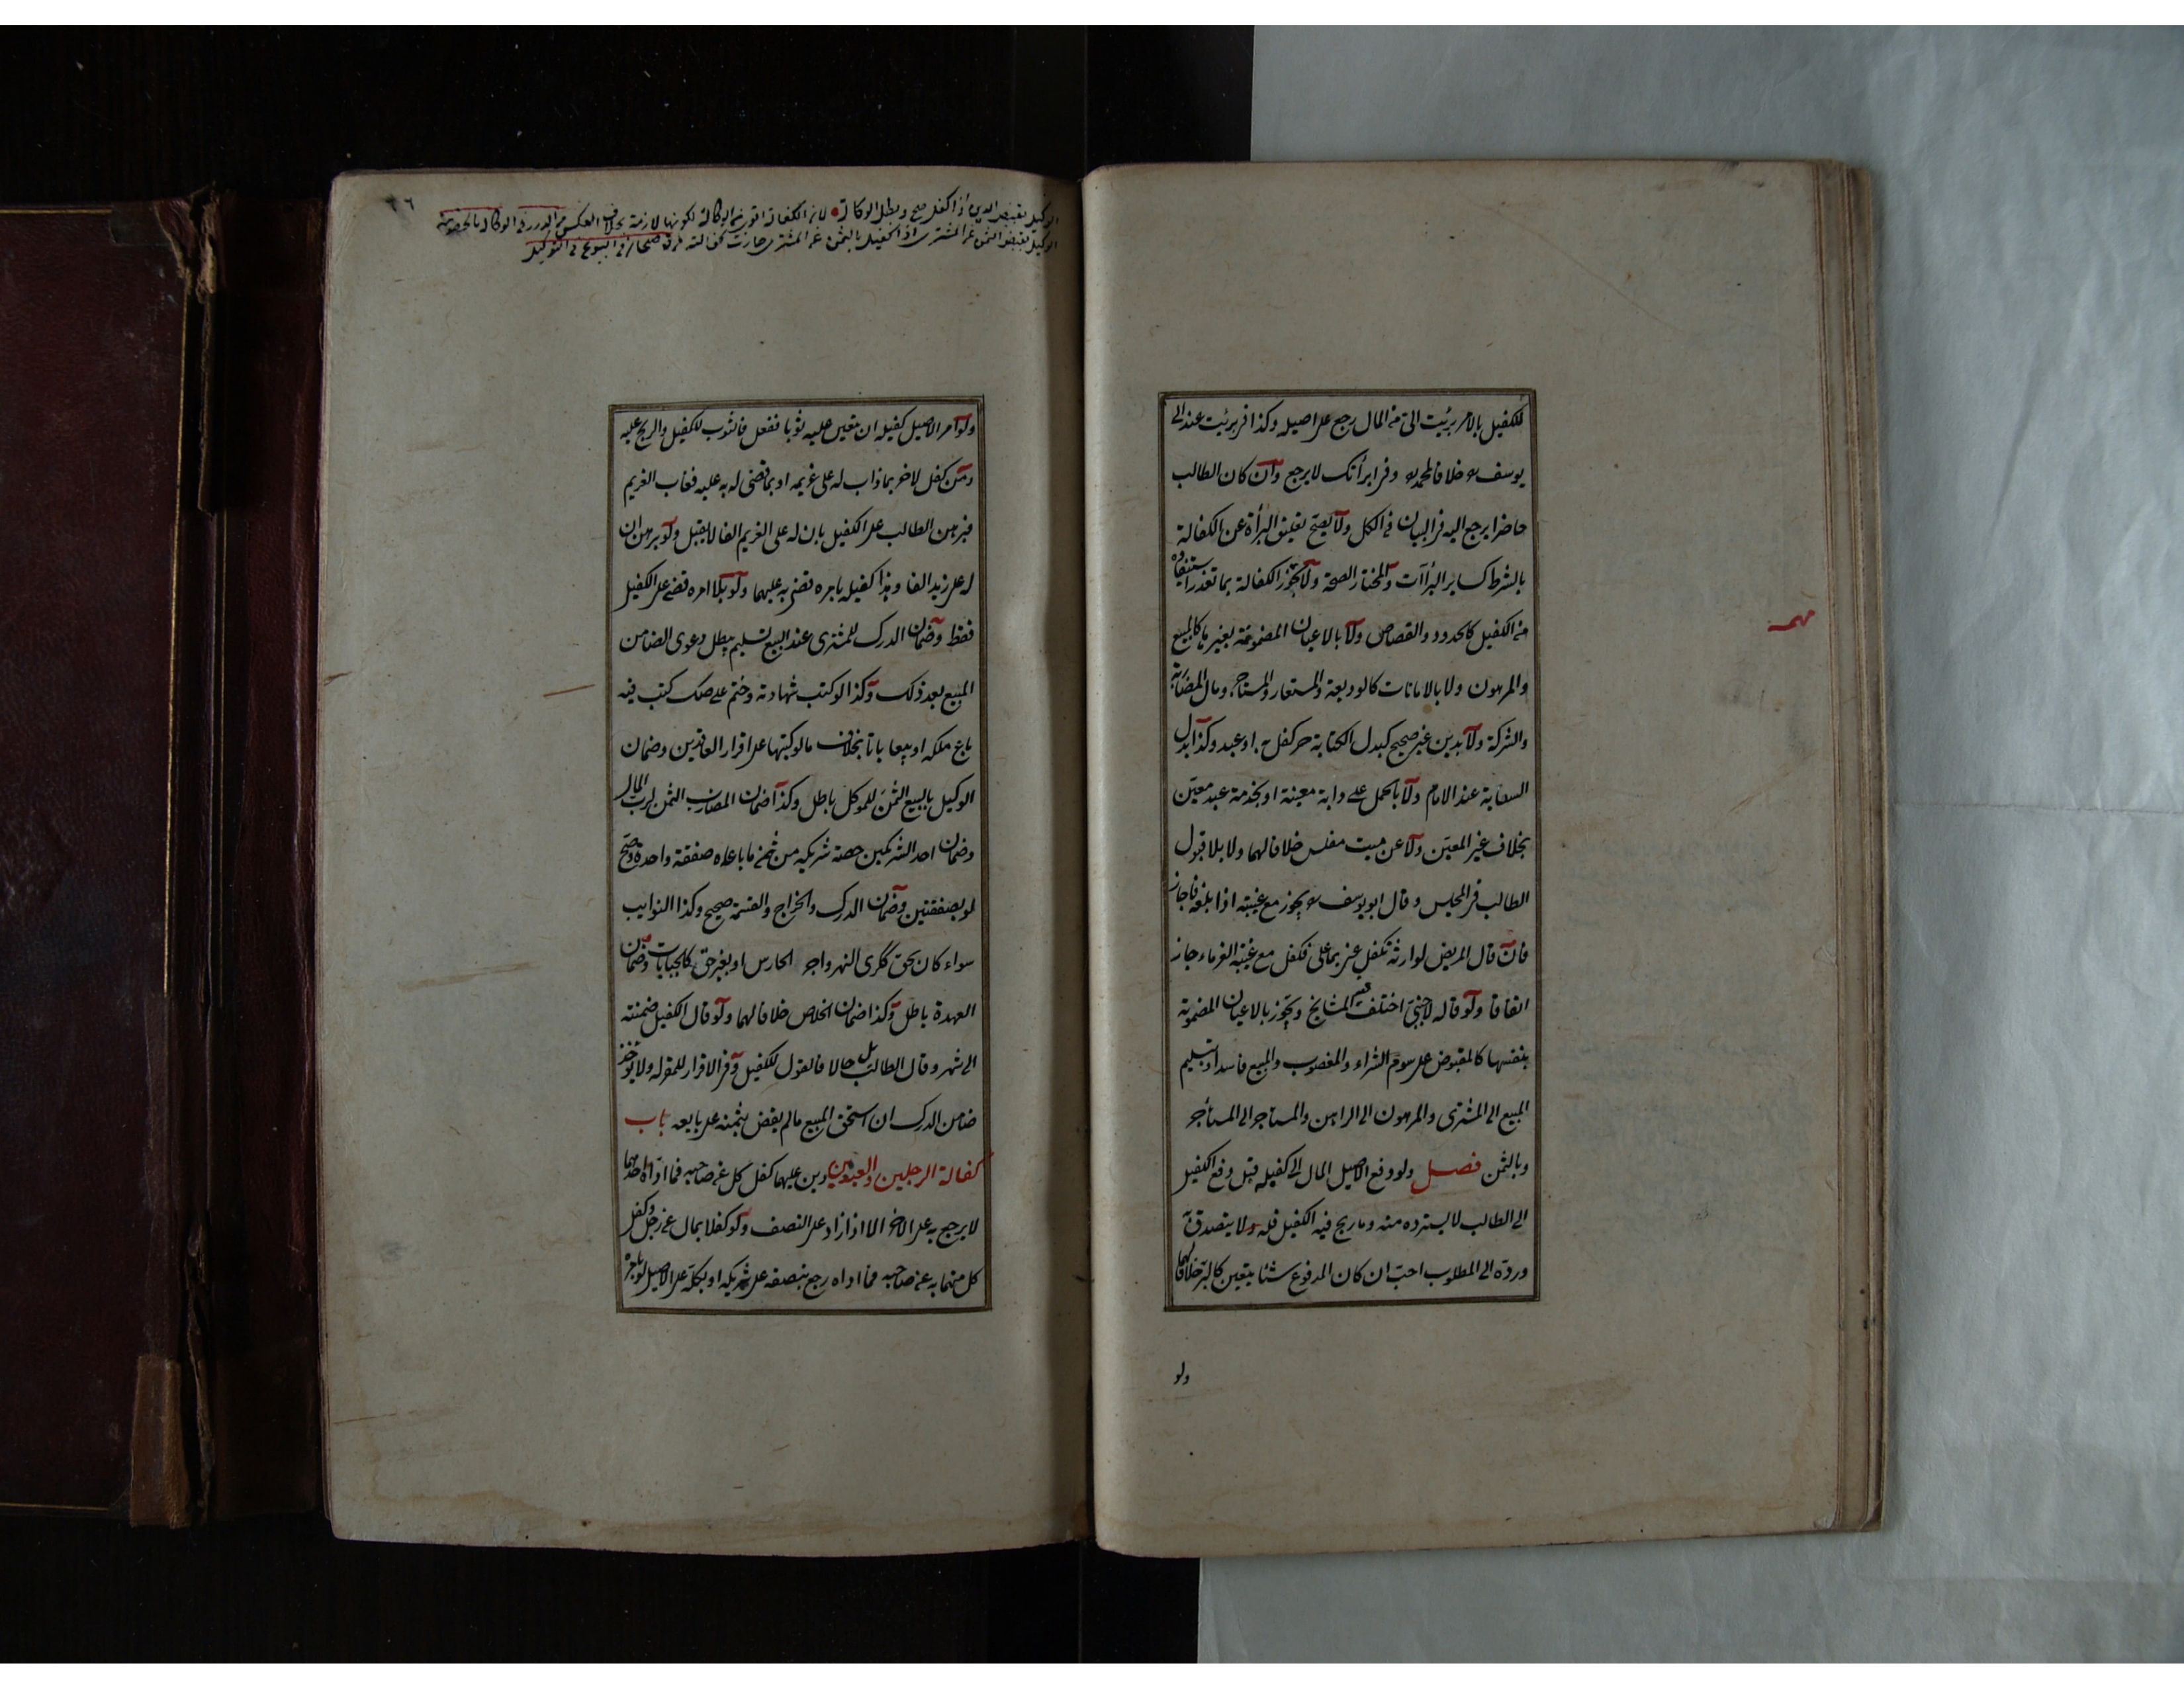 للكفيل بالامر برئت الى من المال رجع على اصيله وكذا فى برئت عند ابى
يوسف ره خلافا لمحمد ره وفى ابرأتك لا يرجع وان كان الطالب
حاضرا يرجع اليه فى البيان فى الكل ولا يصح تعليق البرأة عن الكفالة
بالشرط كساير البرأآت والمختار الصحة ولا تجوز الكفالة بما تعذر استيفاؤه
من الكفيل كالحدود والقصاص ولا بالاعيان المضمونة بغيرها كالمبيع
والمرهون ولا بالامانات كالوديعة والمستعار والمستأجر ومال المضاربة
والشركة ولا بدين غير صحيح كبدل الكتابة حر كفل به او عبد وكذا بدل
السعاية عند الامام ولا بالحمل على دابة معينة او بخدمة عبد معين
بخلاف غير المعين ولا عن ميت مفلس خلافا لهما ولا بلا قبول
الطالب فى المجلس وقال ابو يوسف ره يجوز مع غيبته اذا بلغه فاجاز
فان قال المريض لوارثه تكفل عنى بما على فكفل مع غيبة الغرماء جاز
اتفاقا ولو قاله لاجنبى اختلف فيه المشايخ ويجوز بالاعيان المضمونة
بنفسها كالمقبوض على سوم الشراء والمغصوب والمبيع فاسدا وتسليم
المبيع الى المشترى والمرهون الى الراهن والمستأجر الى المستأجر
وبالثمن فصل ولو دفع الاصيل المال الى كفيله قبل دفع الكفيل
الى الطالب لا يسترده منه وما ربح فيه الكفيل فله ولا يتصدق به
ورده الى المطلوب احب ان كان المدفوع شئا يتعين كالبر خلافا لهما
ولو
مهم
٢٦
الوكيل بقبض الدين اذا كفل صح وبطل الوكالة لان الكفالة اقوى من الوكالة لكونها لازمة بخلاف العكس من الدرر فى الوكالة بالخصومة
الوكيل بقبض الثمن من المشترى اذا كفيل بالثمن عن المشترى جازت كفالته فى البيوع فى التوكيل
ولو امر الاصيل كفيله ان يتعين عليه ثوبا ففعل فالثوب للكفيل والربح عليه
ومن كفل لاخر بما ذاب له على غريمه او بما قضى له به عليه فغاب الغريم
فبرهن الطالب على الكفيل بان له على الغريم الفا لا يقبل ولو برهن ان
له على زيد الفا وهذا كفيله بامره قضى به عليهما ولو بلا امره قضى على الكفيل
فقط وضمان الدرك للمشترى عند البيع تسليم يبطل دعوى الضامن
المبيع بعد ذلك وكذا لو كتب شهادته وختم على صك كتب فيه
باع ملكه او بيعا باتا بخلاف ما لو كتبها على اقرار العاقدين وضمان
الوكيل بالبيع الثمن للموكل باطل وكذا ضمان المضارب الثمن لرب المال
وضمان احد الشريكين حصة شريكه من ثمن ما باعاه صفقة واحدة وصح
لو بصفقتين وضمان الدرك والخراج والقسمة صحيح وكذا النوايب
سواء كان بحق ككرى النهر واجر الحارس او بغير حق كالجبايات وضمان
العهدة باطل وكذا ضمان الخلاص خلافا لهما ولو قال الكفيل ضمنته
الى شهر وقال الطالب بل حالا فالقول للكفيل وفى الاقرار للمقر له ولا يؤخذ
ضامن الدرك ان استحق المبيع ما لم يقض بثمنه على بايعه باب
كفالة الرجلين والعبدين دين عليهما كفل كل عن صاحبه فما اداه احدهما
لا يرجع به على الاخر الا اذا زاد على النصف ولو كفلا بمال عن رجل وكفل
كل منهما به عن صاحبه فما اداه رجع بنصفه على شريكه او بكله على الاصيل لو بامره